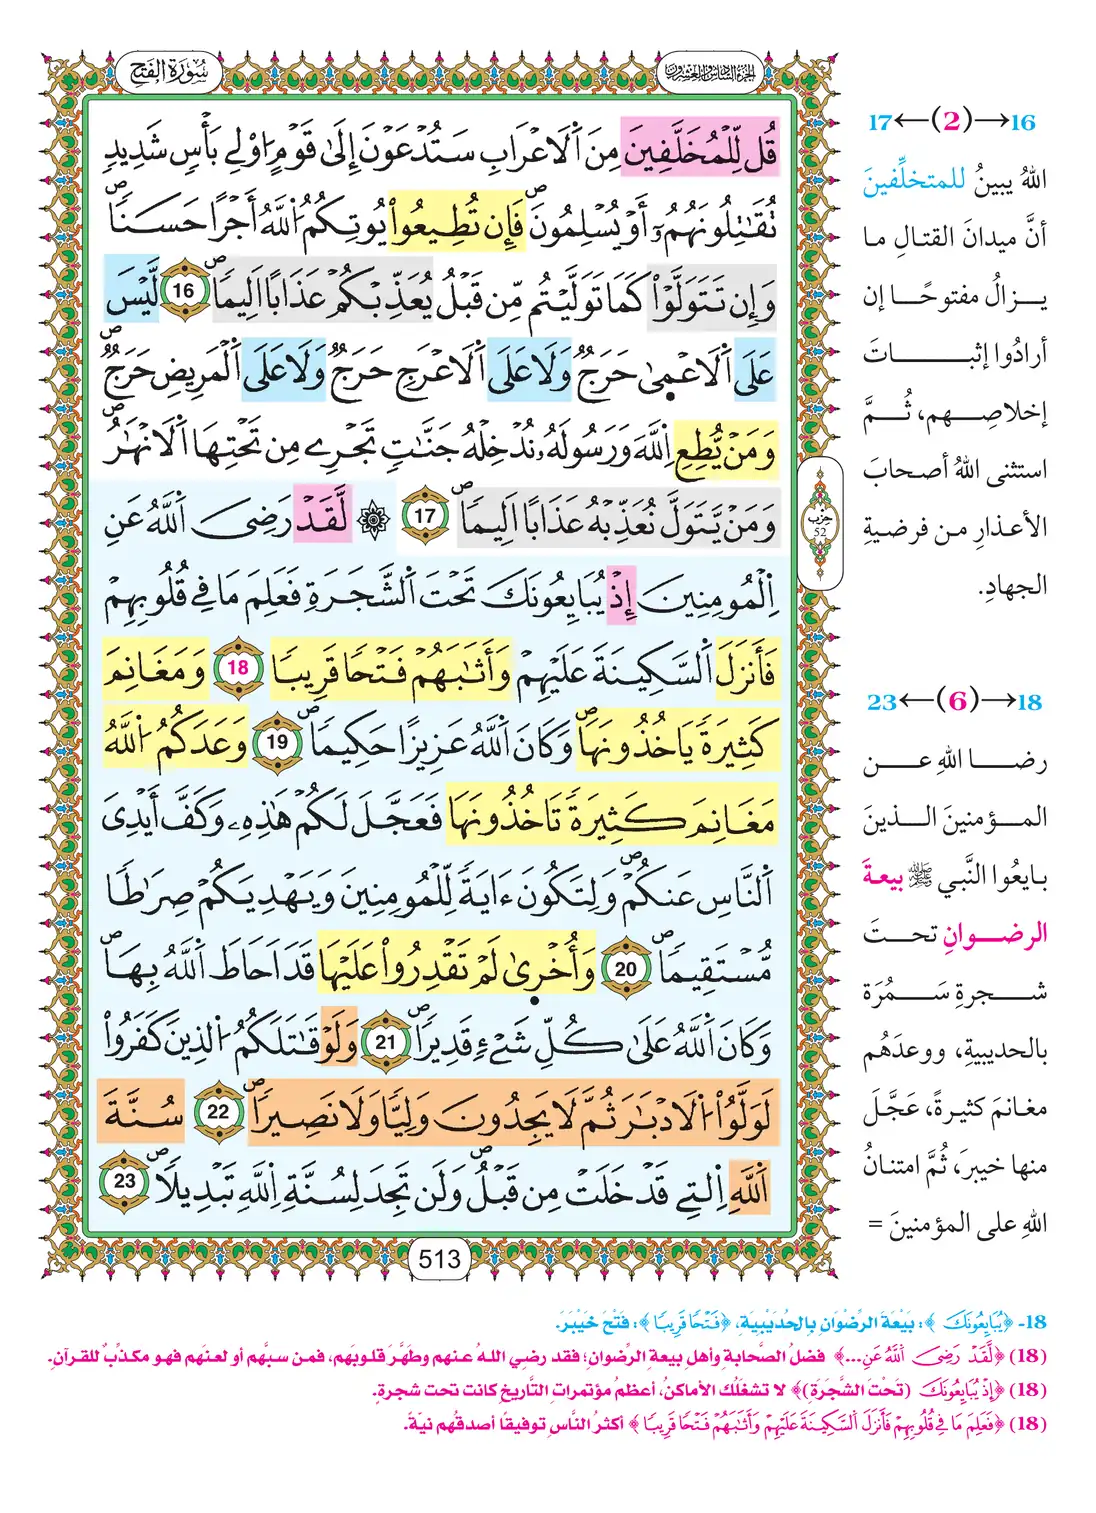 سُورَةُ الفَتْحِ
الجزء السادس والعشرون
قُل لِّلْمُخَلَّفِينَ مِنَ اَ۬لَاعْرَابِ سَتُدْعَوْنَ إِلَىٰ قَوْمٍ ا۟وْلِے بَأْسٖ شَدِيدٖ
تُقَٰتِلُونَهُمُۥٓ أَوْ يُسْلِمُونَۖ فَإِن تُطِيعُواْ يُوتِكُمُ اُ۬للَّهُ أَجْراً حَسَناٗۖ
وَإِن تَتَوَلَّوْاْ كَمَا تَوَلَّيْتُم مِّن قَبْلُ يُعَذِّبْكُمْ عَذَاباً اَلِيماٗۖ 16 لَّيْسَ
عَلَى اَ۬لَاعْم۪ىٰ حَرَجٞ وَلَا عَلَى اَ۬لَاعْرَجِ حَرَجٞ وَلَا عَلَى اَ۬لْمَرِيضِ حَرَجٞۖ
وَمَنْ يُّطِعِ اِ۬للَّهَ وَرَسُولَهُۥ نُدْخِلْهُ جَنَّٰتٖ تَجْرِے مِن تَحْتِهَا اَ۬لَانْهَٰرُۖ
وَمَنْ يَّتَوَلَّ نُعَذِّبْهُ عَذَاباً اَلِيماٗۖ 17 ۞ لَّقَدْ رَضِيَ اَ۬للَّهُ عَنِ
اِ۬لْمُومِنِينَ إِذْ يُبَايِعُونَكَ تَحْتَ اَ۬لشَّجَرَةِ فَعَلِمَ مَا فِے قُلُوبِهِمْ
فَأَنزَلَ اَ۬لسَّكِينَةَ عَلَيْهِمْ وَأَثَٰبَهُمْ فَتْحاٗ قَرِيباٗ 18 وَمَغَانِمَ
كَثِيرَةٗ يَاخُذُونَهَاۖ وَكَانَ اَ۬للَّهُ عَزِيزاً حَكِيماٗۖ 19 وَعَدَكُمُ اُ۬للَّهُ
مَغَانِمَ كَثِيرَةٗ تَاخُذُونَهَا فَعَجَّلَ لَكُمْ هَٰذِهِۦ وَكَفَّ أَيْدِيَ
اَ۬لنَّاسِ عَنكُمْۖ وَلِتَكُونَ ءَايَةٗ لِّلْمُومِنِينَ وَيَهْدِيَكُمْ صِرَٰطاٗ
مُّسْتَقِيماٗۖ 20 وَأُخْر۪ىٰ لَمْ تَقْدِرُواْ عَلَيْهَا قَدَ اَحَاطَ اَ۬للَّهُ بِهَاۖ
وَكَانَ اَ۬للَّهُ عَلَىٰ كُلِّ شَےْءٖ قَدِيراٗۖ 21 وَلَوْ قَٰتَلَكُمُ اُ۬لذِينَ كَفَرُواْ
لَوَلَّوُاْ اُ۬لَادْبَٰرَ ثُمَّ لَا يَجِدُونَ وَلِيّاٗ وَلَا نَصِيراٗۖ 22 سُنَّةَ
اَ۬للَّهِ اِ۬لتِے قَدْ خَلَتْ مِن قَبْلُۖ وَلَن تَجِدَ لِسُنَّةِ اِ۬للَّهِ تَبْدِيلاٗۖ 23
حزب
52
513
17←(2)→16
اللهُ يبينُ للمتخلِّفينَ
أنَّ ميدانَ القتالِ ما
يزالُ مفتوحًا إن
أرادُوا إثباتَ
إخلاصِهم، ثُمَّ
استثنى اللهُ أصحابَ
الأعذارِ من فرضيةِ
الجهادِ.
23←(6)→18
رضا اللهِ عن
المؤمنينَ الذينَ
بايعُوا النَّبي ﷺ بيعةَ
الرضوانِ تحتَ
شجرةِ سَمُرَة
بالحديبيةِ، ووعدَهُم
مغانمَ كثيرةً، عَجَّلَ
منها خيبرَ، ثُمَّ امتنانُ
اللهِ على المؤمنينَ =
18- ﴿يُبَايِعُونَكَ﴾: بَيْعَةَ الرِّضْوَانِ بِالحُدَيْبِيَةِ، ﴿فَتْحاٗ قَرِيباٗ﴾: فَتْحَ خَيْبَرَ.
(18) ﴿لَّقَدْ رَضِيَ اَ۬للَّهُ عَنِ...﴾ فضلُ الصَّحابةِ وأهلِ بيعةِ الرِّضوانِ؛ فقد رضي اللهُ عنهم وطهَّرَ قلوبَهم، فمن سبَّهم أو لعنَهم فهو مكذِّبٌ للقرآنِ.
(18) ﴿إِذْ يُبَايِعُونَكَ (تَحْتَ الشَّجَرَةِ)﴾ لا تشغلْك الأماكنُ، أعظمُ مؤتمراتِ التَّاريخِ كانت تحت شجرةٍ.
(18) ﴿فَعَلِمَ مَا فِے قُلُوبِهِمْ فَأَنزَلَ اَ۬لسَّكِينَةَ عَلَيْهِمْ وَأَثَٰبَهُمْ فَتْحاٗ قَرِيباٗ﴾ أكثرُ النَّاسِ توفيقًا أصدقُهم نيّةً.